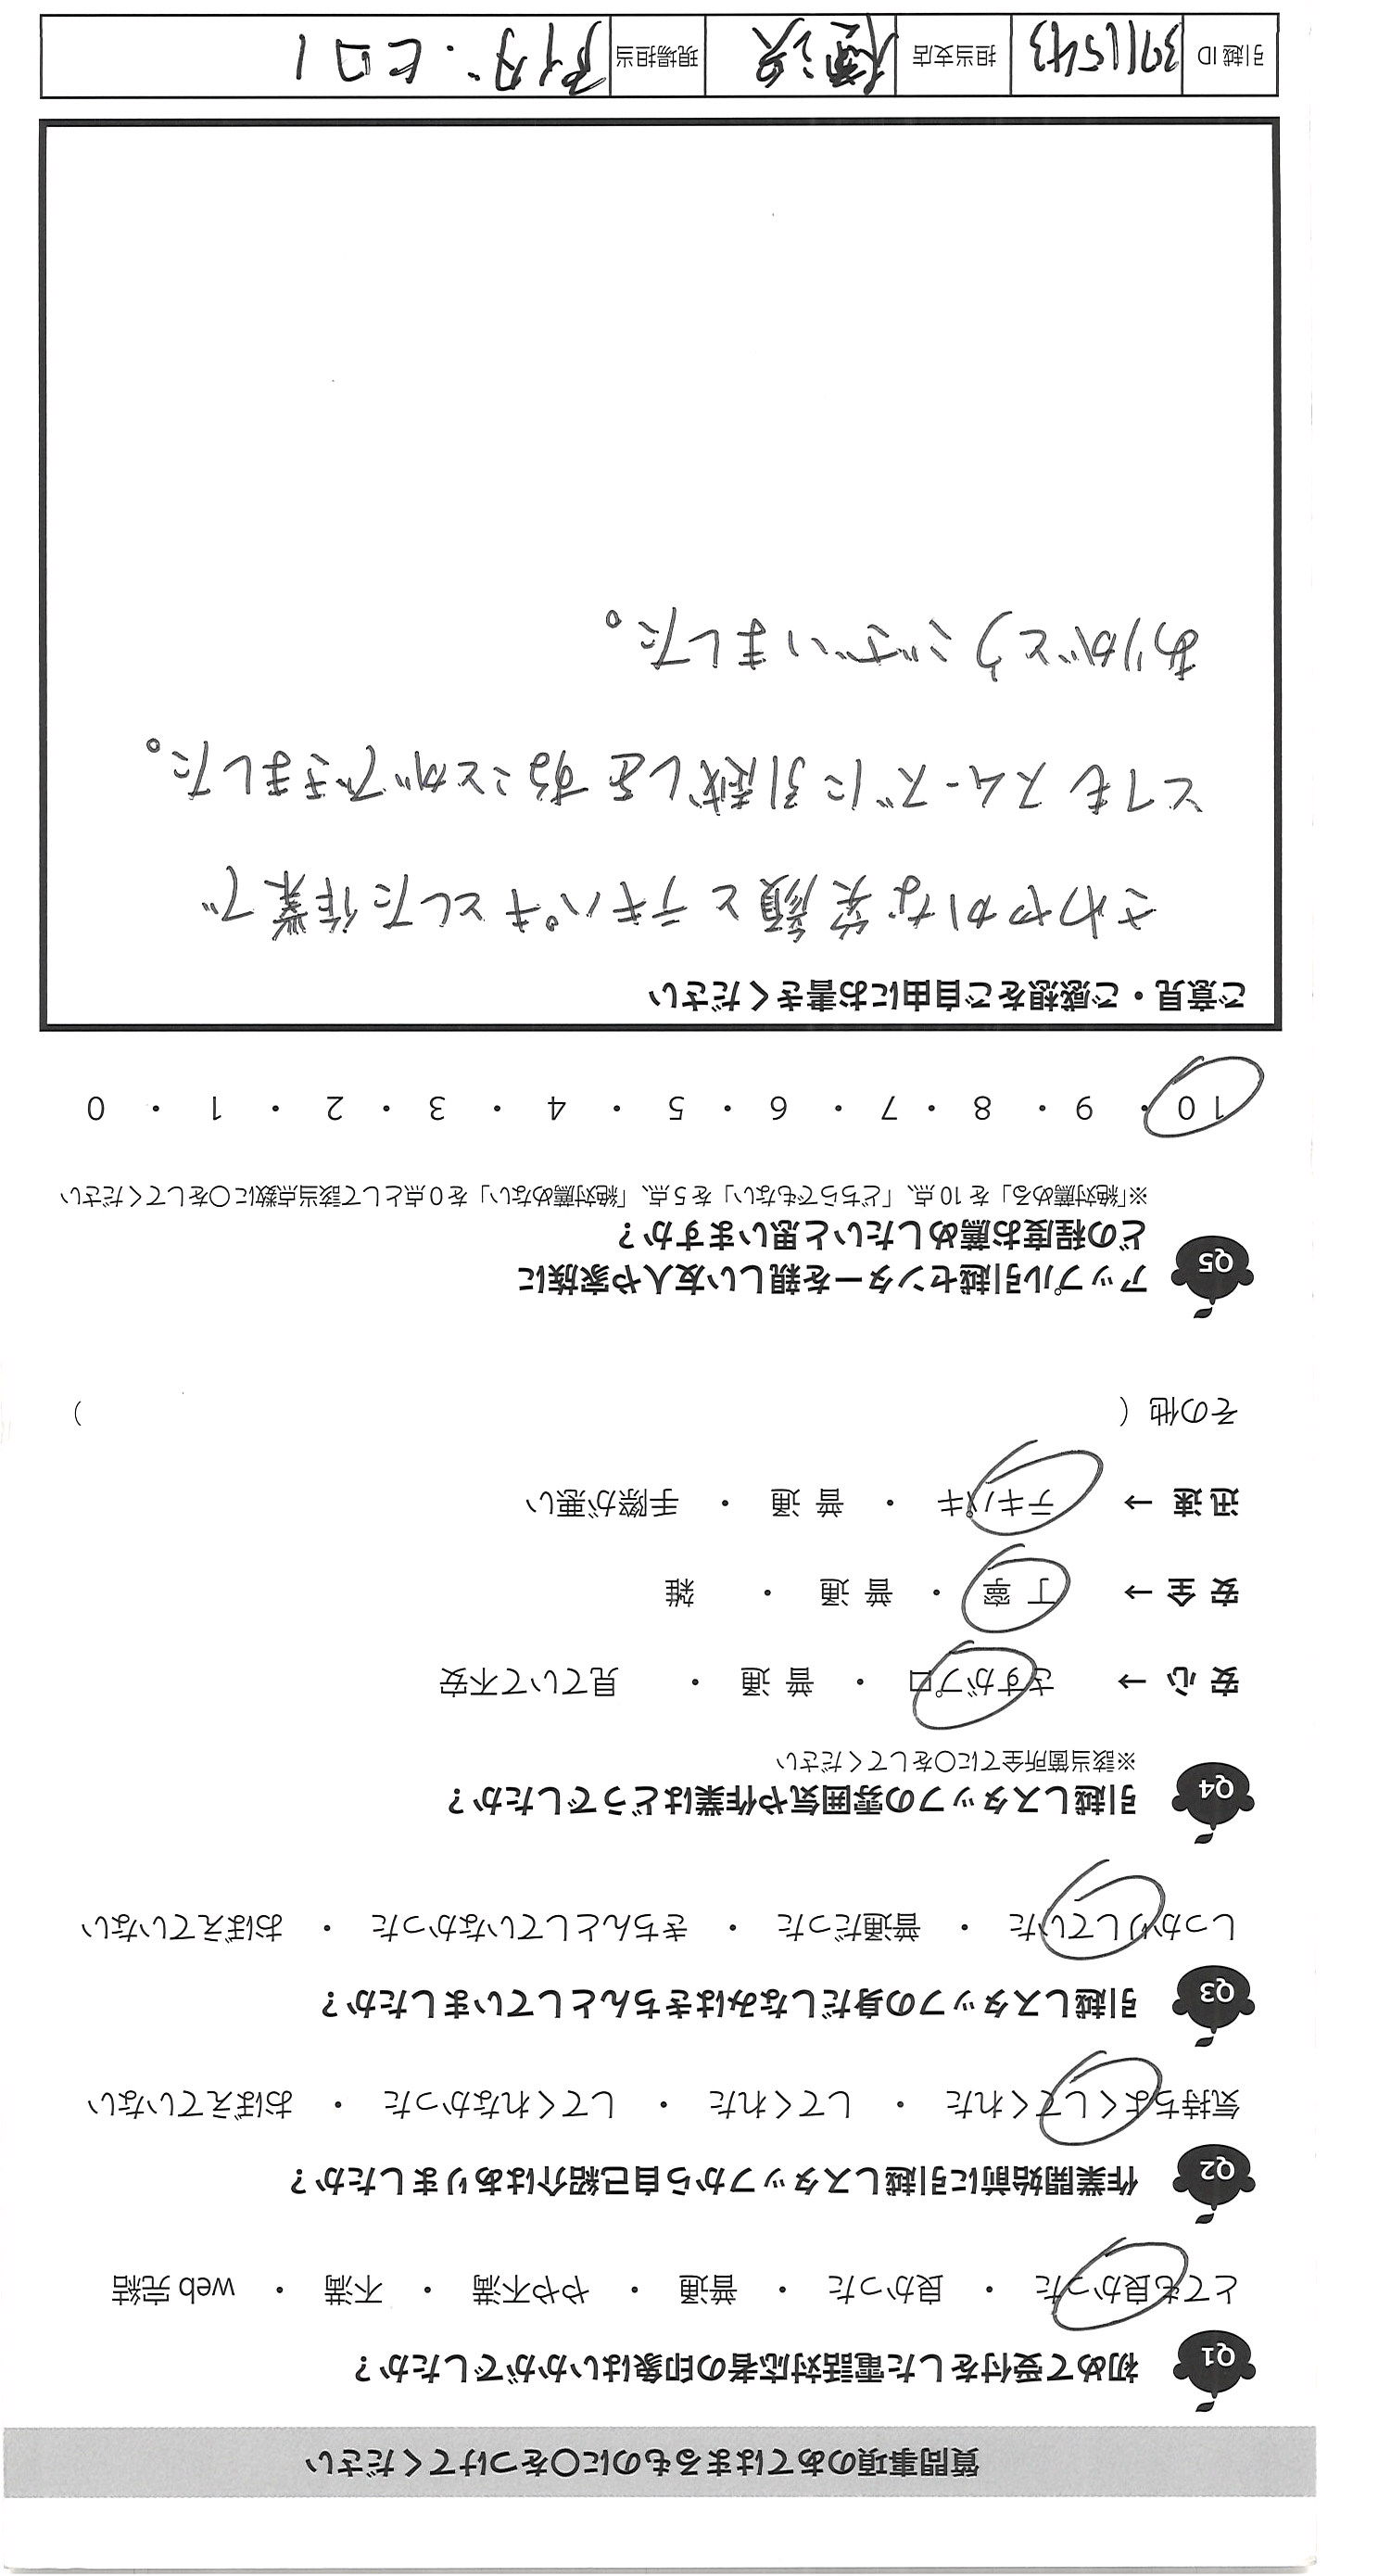 質問事項のあてはまるものに〇をつけてください
Q1 初めて受付をした電話対応者の印象はいかがでしたか？
とても良かった ・ 良かった ・ 普通 ・ やや不満 ・ 不満 ・ web 完結
Q2 作業開始前に引越しスタッフから自己紹介はありましたか？
気持ちよくしてくれた ・ してくれた ・ してくれなかった ・ おぼえていない
Q3 引越しスタッフの身だしなみはきちんとしていましたか？
しっかりしていた ・ 普通だった ・ きちんとしていなかった ・ おぼえていない
Q4 引越しスタッフの雰囲気や作業はどうでしたか？
※該当箇所全てに〇をしてください
安心 → さすがプロ ・ 普通 ・ 見ていて不安
安全 → 丁寧 ・ 普通 ・ 雑
迅速 → テキパキ ・ 普通 ・ 手際が悪い
その他（ ）
Q5 アップル引越センターを親しい友人や家族に
どの程度お薦めしたいと思いますか？
※「絶対薦める」を 10 点、「どちらでもない」を 5 点、「絶対薦めない」を 0 点として該当点数に〇をしてください
10 ・ 9 ・ 8 ・ 7 ・ 6 ・ 5 ・ 4 ・ 3 ・ 2 ・ 1 ・ 0
ご意見・ご感想をご自由にお書きください
さわやかな笑顔とテキパキとした作業で
とてもスムーズに引越しをすることができました。
ありがとうございました。
引越 ID 3971543 担当支店 横浜 現場担当